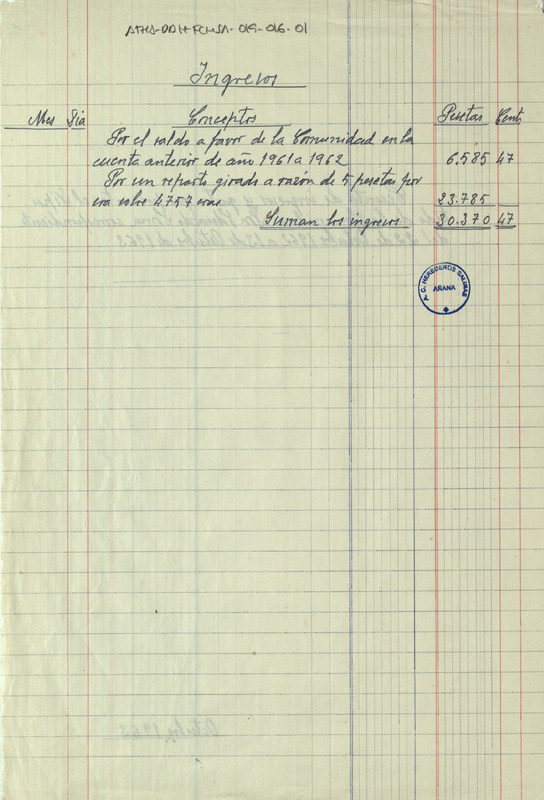 ATHA-DDH-FCHSA-019-016-01
Ingresos
Mes Dia Conceptos Pesetas Cents
Por el saldo a favor de la Comunidad en la
cuenta anterior de año 1961 a 1962 6.585 47
Por un reparto girado a razón de 5 pesetas por
era sobre 4.757 eras 23.785
Suman los ingresos 30.370 47
A. C. HEREDEROS SALINAS
AÑANA
Octubre 1963